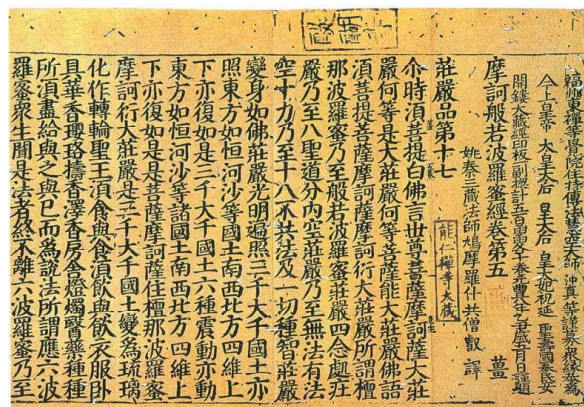 福州東禪等覺院住持傳法慧空大師 沖真等謹募衆緣恭為
今上皇帝 太皇太后 皇太后 皇太妃祝延 聖壽國泰民安
開鏤大藏經印板一副總計五百函
摩訶般若波羅蜜經卷第五 薑
姚秦三藏法師鳩摩羅什共僧叡 譯
能仁禪寺大藏
莊嚴品第十七
尒時須菩提白佛言世尊菩薩摩訶薩大莊
嚴何等是大莊嚴何等菩薩能大莊嚴佛語
須菩提菩薩摩訶薩摩訶衍大莊嚴所謂檀
那波羅蜜乃至般若波羅蜜莊嚴四念處莊
嚴乃至八聖道分內空莊嚴乃至無法有法
空十力乃至十八不共法及一切種智莊嚴
變身如佛莊嚴光明遍照三千大千國土亦
照東方如恒河沙等國土南西北方四維上
下亦復如是三千大千國土六種震動亦動
東方如恒河沙等諸國土南西北方四維上
下亦復如是是菩薩摩訶薩住檀那波羅蜜
摩訶衍大莊嚴是三千大千國土變為琉璃
化作轉輪聖王須食與食須飲與飲衣服卧
具華香瓔珞擣香澤香房舍燈燭醫藥種種
所須盡給與之與已而為說法所謂應六波
羅蜜衆生聞是法者終不離六波羅蜜乃至